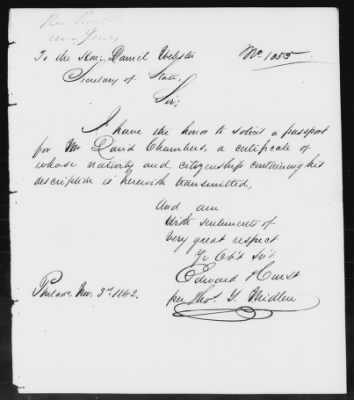 To the Hon: Daniel Webster
No 1055
Secretary of State.
Sir;
I have the honor to solicit a passport
for Mr David Chambers, a certificate of
whose nativity and citizenship containing his
description is herewith transmitted,
And am
With sentiments of
Very great respect
Yr Ob't Sv't
Edward Hurst
per Thos. Y.
Philada. Nov. 3rd 1842.